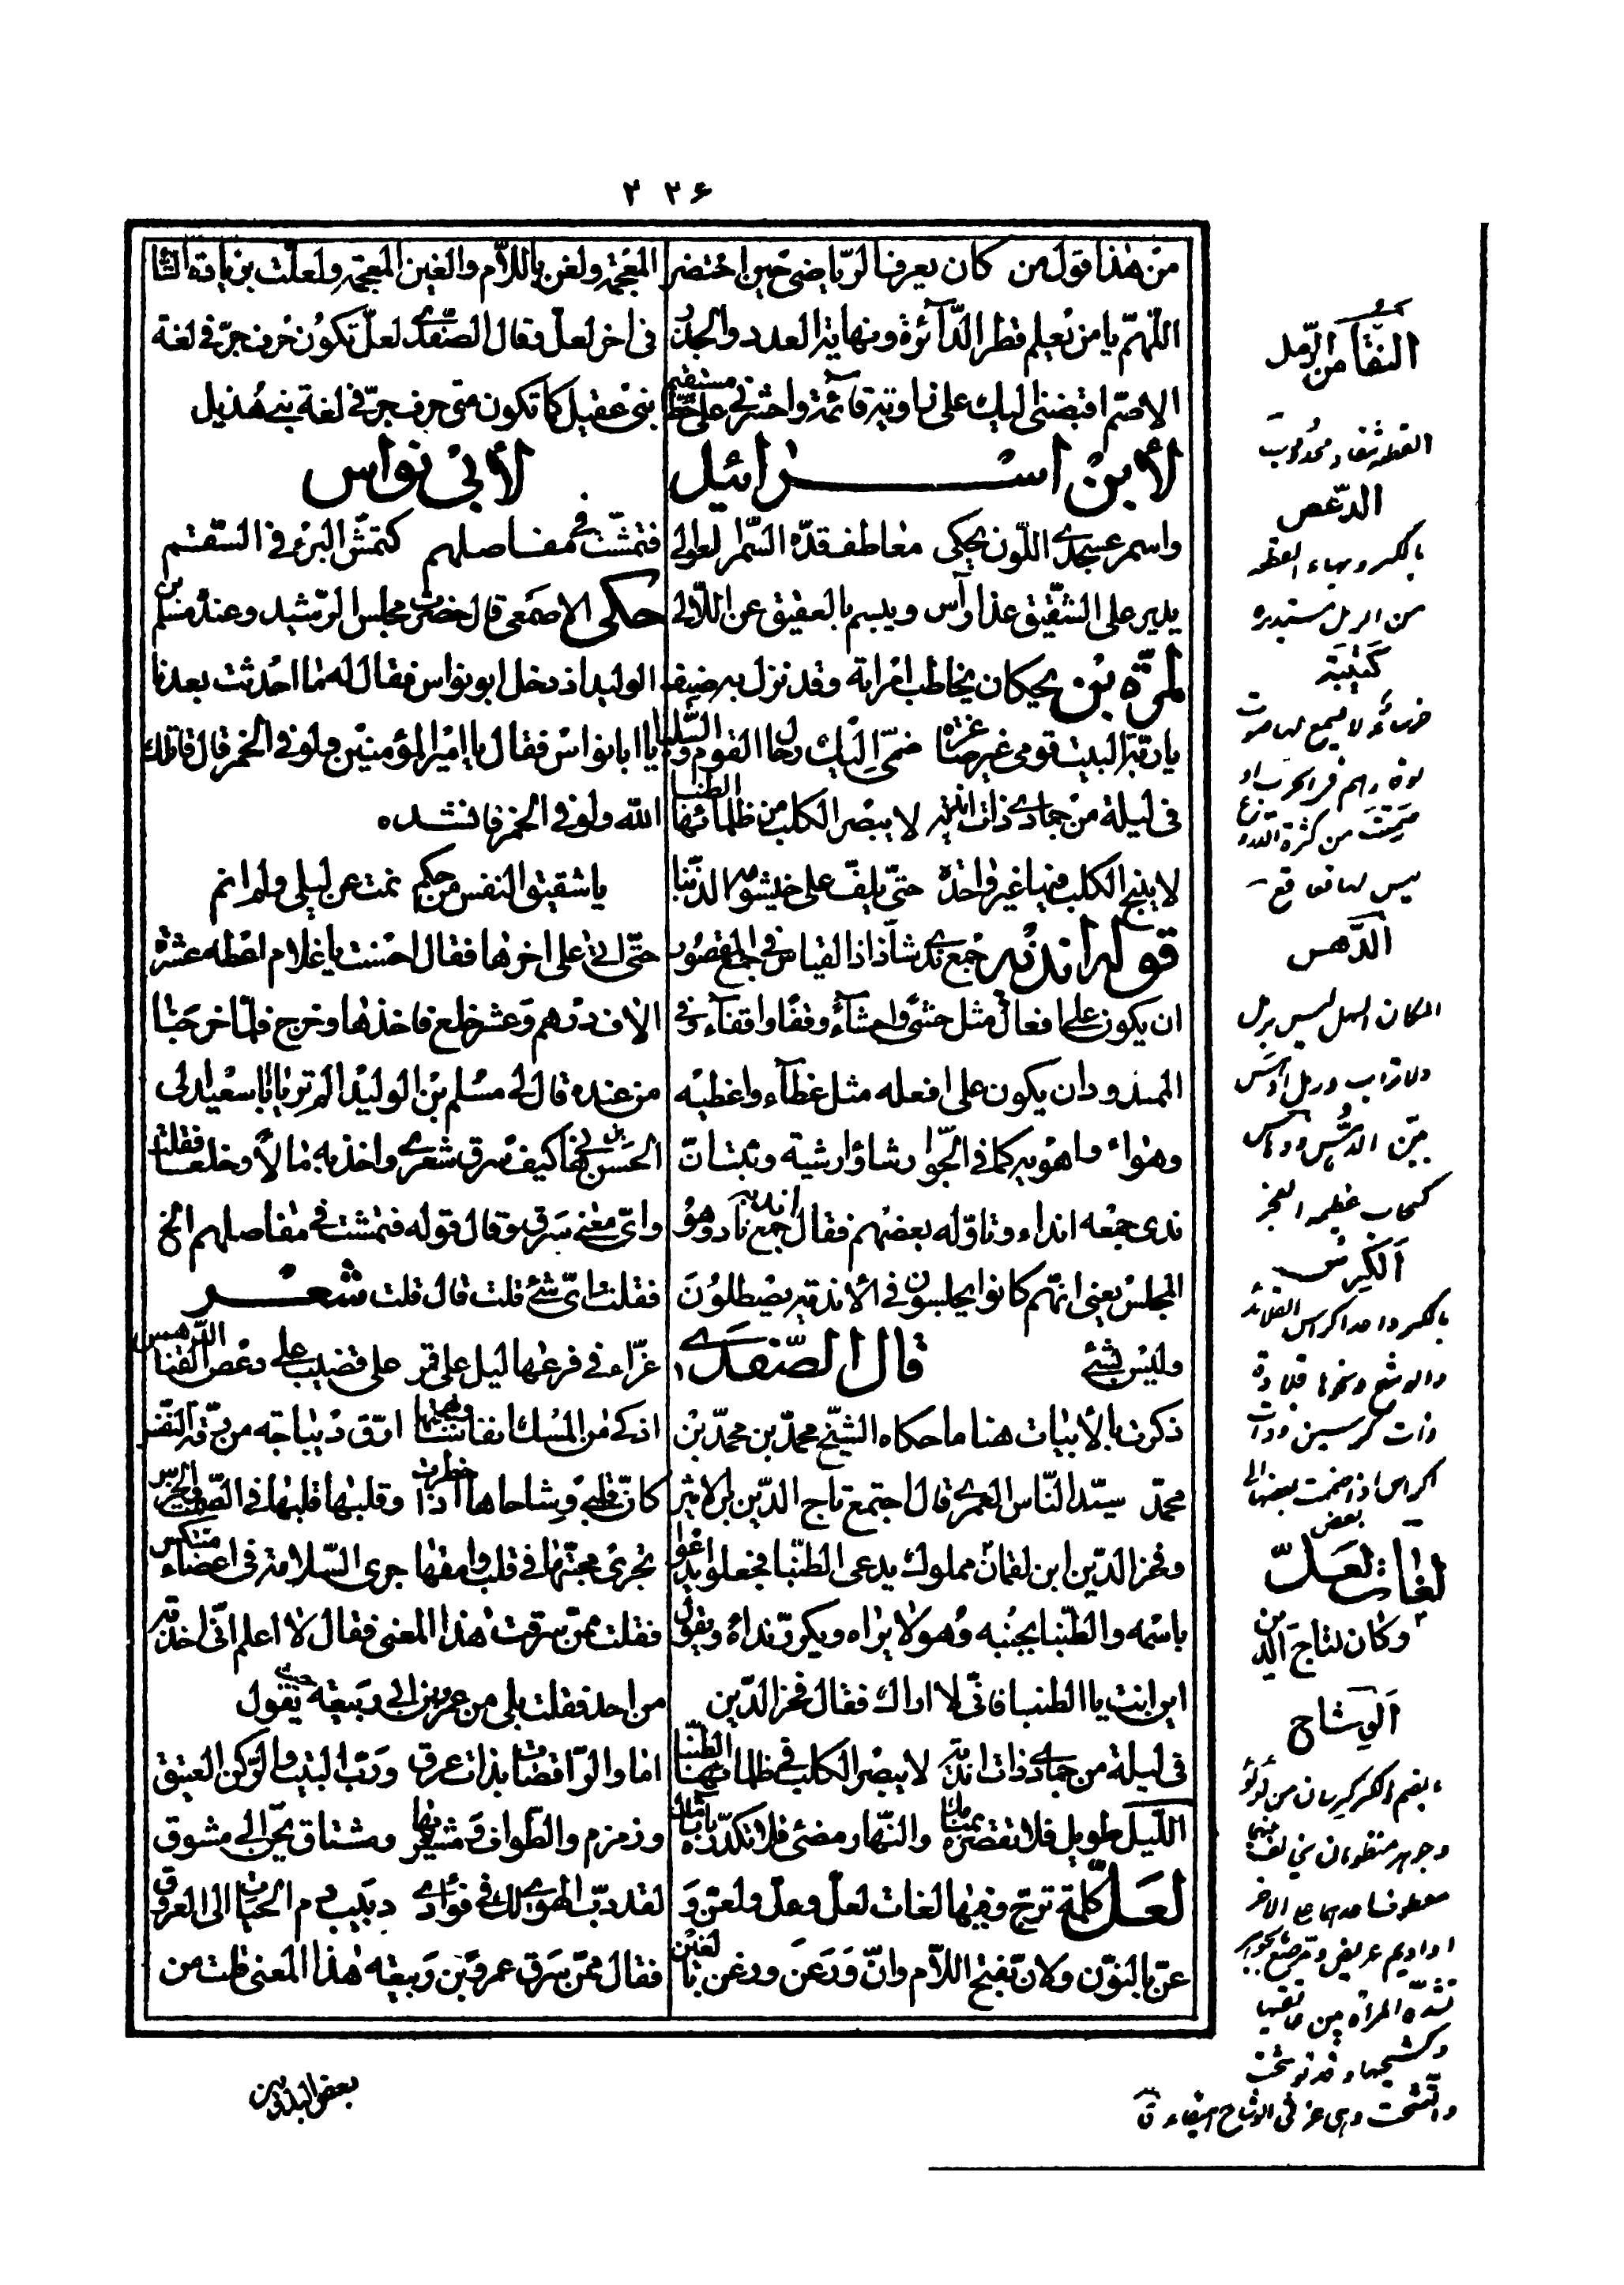 ۲۲۶
من هذا قول من كان يعرف الرياضى حين احتضر
اللهم يا من يعلم قطر الدائرة ونهاية العدد والجذر
الاصم اقبضنى اليك على زاوية قائمة واحشرنى على خط مستقيم
لأبن اسرائيل
واسمر عسجدى اللون يحكى معاطف قده السمر العوالى
يدير على الشقيق عذار آس ويبسم بالعقيق عن اللآلى
لمرة بن يحكان يخاطب امرأته وقد نزل به ضيف
يا ربة البيت قومى غير صاغرة ضمى اليك رحال القوم والسلبا
فى ليلة من جمادى ذات اندية لا يبصر الكلب من ظلمائها الطنبا
لا ينبح الكلب فيها غير واحدة حتى يلف على خيشومه الذنبا
قوله اندية جمع ندى شاذ اذ القياس فى جمع المقصور
ان يكون على افعال مثل حشى واحشاء وقفا واقفاء وفى
الممدود ان يكون على افعلة مثل غطاء واغطية
وهواء واهوية كما فى الجوار رشاؤ ارشية
ندى جمعه انداء وتأوله بعضهم فقال اندية جمع ناد وهو
المجلس يعنى انهم كانوا يجلسون فى الأندية يصطلون
وليس بشئ قال الصفدى
ذكرت بالأبيات هنا ما حكاه الشيخ محمد بن محمد بن
محمد سيد الناس العمرى قال اجتمع تاج الدين بن الاثير
وفخر الدين ابن لقمان مملوك يدعى الطنبا فجعلوا يدعوا
باسمه والطنبا بجنبه وهو لا يراه ويكرر نداءه ويقول
اين انت يا الطنبا فانى لا اراك فقال فخر الدين
فى ليلة من جمادى ذات اندية لا يبصر الكلب فى ظلمائها الطنبا
الليل طويل فلا تقصره بمنامك والنهار مضئ فلا تكدره بآثامك
لعل كلمة ترج وفيها لغات لعل وعل ولعن و
عن بالنون ولان بفتح اللام وان ورعن ورغن بالغين
المعجمة ولغن باللام والغين المعجمة ولعلت بزيادة التاء
فى اخر لعل فقال الصفدى لعل تكون حرف جر فى لغة
بنى عقيل كما تكون متى حرف جر فى لغة بنى هذيل
لأبى نواس
فتمشت فى مفاصلهم كتمشى البرء فى السقم
حكى الاصمعى قال حضرت مجلس الرشيد وعنده مسلم بن
الوليد اذ دخل ابو نواس فقال له ما احدثت بعدنا
يا ابا نواس فقال يا امير المؤمنين ولو فى الخمر قال قاتلك
الله ولو فى الخمر فانشده
يا شقيق النفس من حكم نمت عن ليلى ولم انم
حتى اتى على اخرها فقال احسنت يا غلام اعطه عشرة
الاف درهم وعشر خلع فاخذها وخرج فلما خرجنا
من عنده قال لى مسلم بن الوليد الم تر يا ابا سعيد الى
الحسن بن هانى كيف سرق شعرى واخذ به مالا وخلعا فقلت
واى معنى سرق وقال قوله فتمشت فى مفاصلهم الخ
فقلت اى شئ قلت قال قلت شعر
غراء فى فرعها ليل على قمر على قضيب على دعص النقا الدهس
اذكى من المسك انفاسا وبهجتها ارق ديباجة من رقة النفس
كأن قلبى وشاحاها اذا خطرت وقلبها قلبها فى الصمت والخرس
تجرى محبتها فى قلب وامقها جرى السلامة فى اعضاء منتكس
فقلت ممن سرقت هذا المعنى فقال لا اعلم انى اخذته
من احد فقلت بلى من عمر بن ابى ربيعة حيث يقول
اما والراقصات بذات عرق ورب البيت والركن العتيق
وزمزم والطواف ومشعريها ومشتاق يحن الى مشوق
لقد دب الهوى لك فى فؤادى دبيب دم الحياة الى العروق
فقال ممن سرق عمرو بن ربيعة هذا المعنى قلت من
بعض العذريين
النقا من الرمل
القطعة تنقاد محدودب
الدعص
بالكسر وبهاء القطعة
من الرمل مستديرة
كتيبة
خرساء لا يسمع لها صوت
صمتت من كثرة الدروع
ليس لها قعاقع
الدهس
المكان السهل ليس برمل
ولا تراب ورمل ادهس
بين الدهس
كسحاب عظيمة العجز
الكرس
بالكسر واحد اكراس القلائد
والوشح ونحوها قلادة
ذات كرسين وذات
اكراس اذا ضمت بعضها الى
بعض
لغات لعل
وكان لتاج الدين
الوشاح
بالضم والكسر كرسان من لؤلؤ
وجوهر منظومان يخالف بينهما
معطوف احدهما على الاخر
او اديم عريض يرصع بالجواهر
تشده المرأة بين عاتقيها
وكشحيها وقد توشحت
واتشحت وهى غرثى الوشاح هيفاء ق